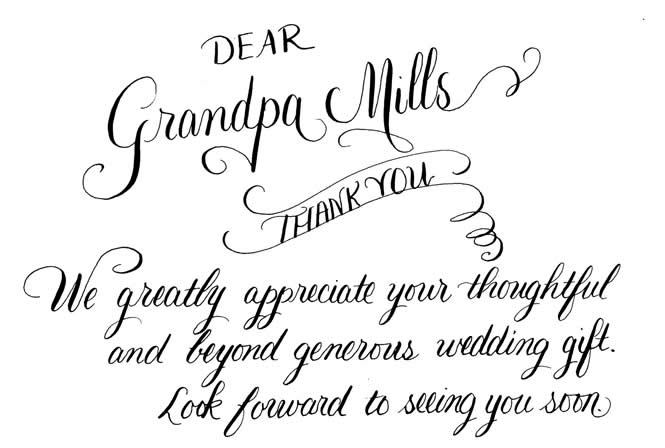 DEAR
Grandpa Mills
THANK YOU
We greatly appreciate your thoughtful
and beyond generous wedding gift.
Look forward to seeing you soon.